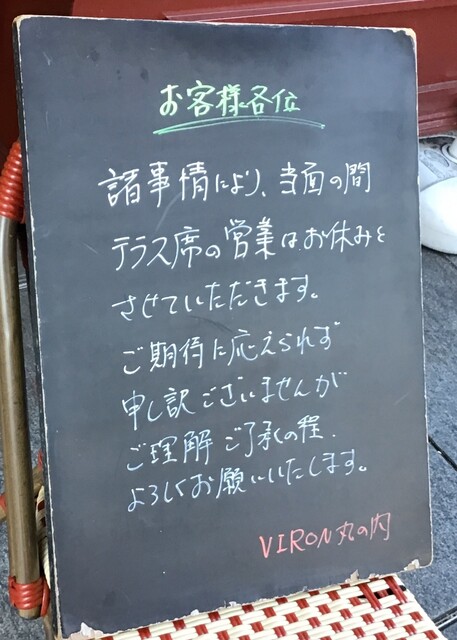 お客様各位
諸事情により、当面の間
テラス席の営業はお休みを
させていただきます。
ご期待に応えられず
申し訳ございませんが
ご理解ご了承の程、
よろしくお願いいたします。
VIRON丸の内